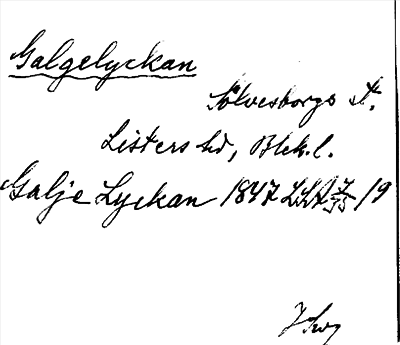 Galgelyckan
Sölvesborgs st.
Listers hd, Blek. l.
Galje Lyckan 1847 LSA /9